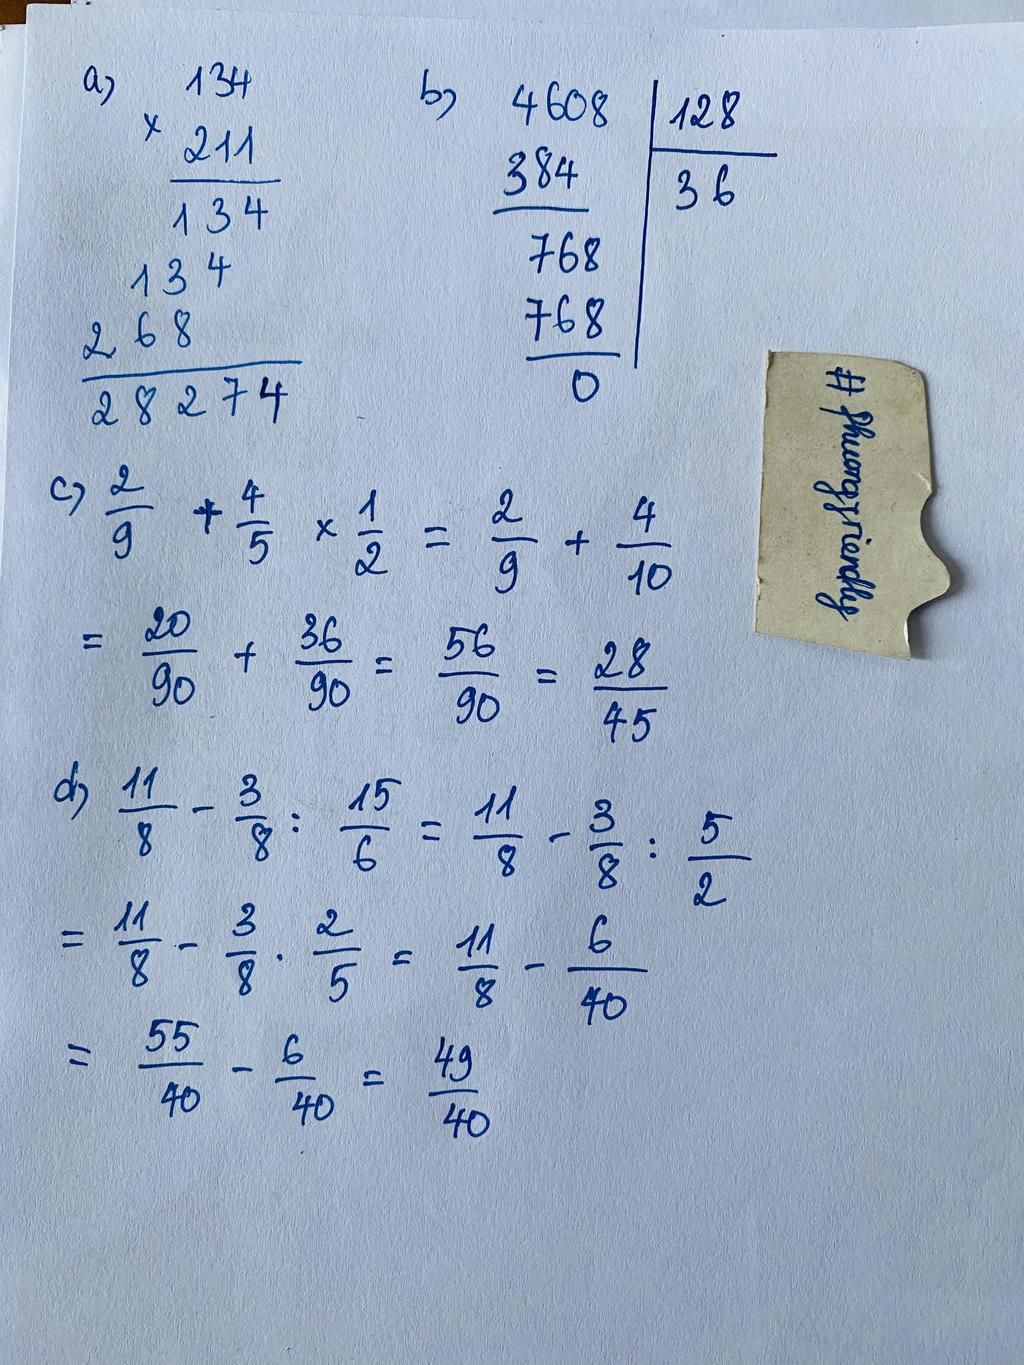 a) 134
× 211
134
134
268
28274
b) 4608 | 128
384 36
768
768
0
c) 2/9 + 4/5 × 1/2 = 2/9 + 4/10
= 20/90 + 36/90 = 56/90 = 28/45
d) 11/8 - 3/8 : 15/6 = 11/8 - 3/8 : 5/2
= 11/8 - 3/8 . 2/5 = 11/8 - 6/40
= 55/40 - 6/40 = 49/40